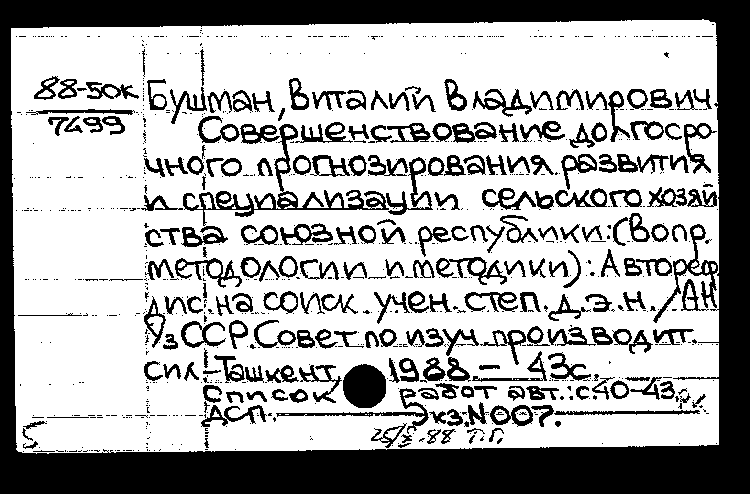 88-50к
7499
Бушман, Виталий Владимирович.
Совершенствование долгосро-
чного прогнозирования развития
и специализации сельского хозяй
ства союзной республики: (Вопр.
методологии и методики): Автореф.
дис. на соиск. учен. степ. д.э.н. / АН
УзССР. Совет по изуч. производит.
сил - Ташкент, 1988. - 43с.
Список работ авт.: с.40-43
ДСП. Экз. N 007.
5